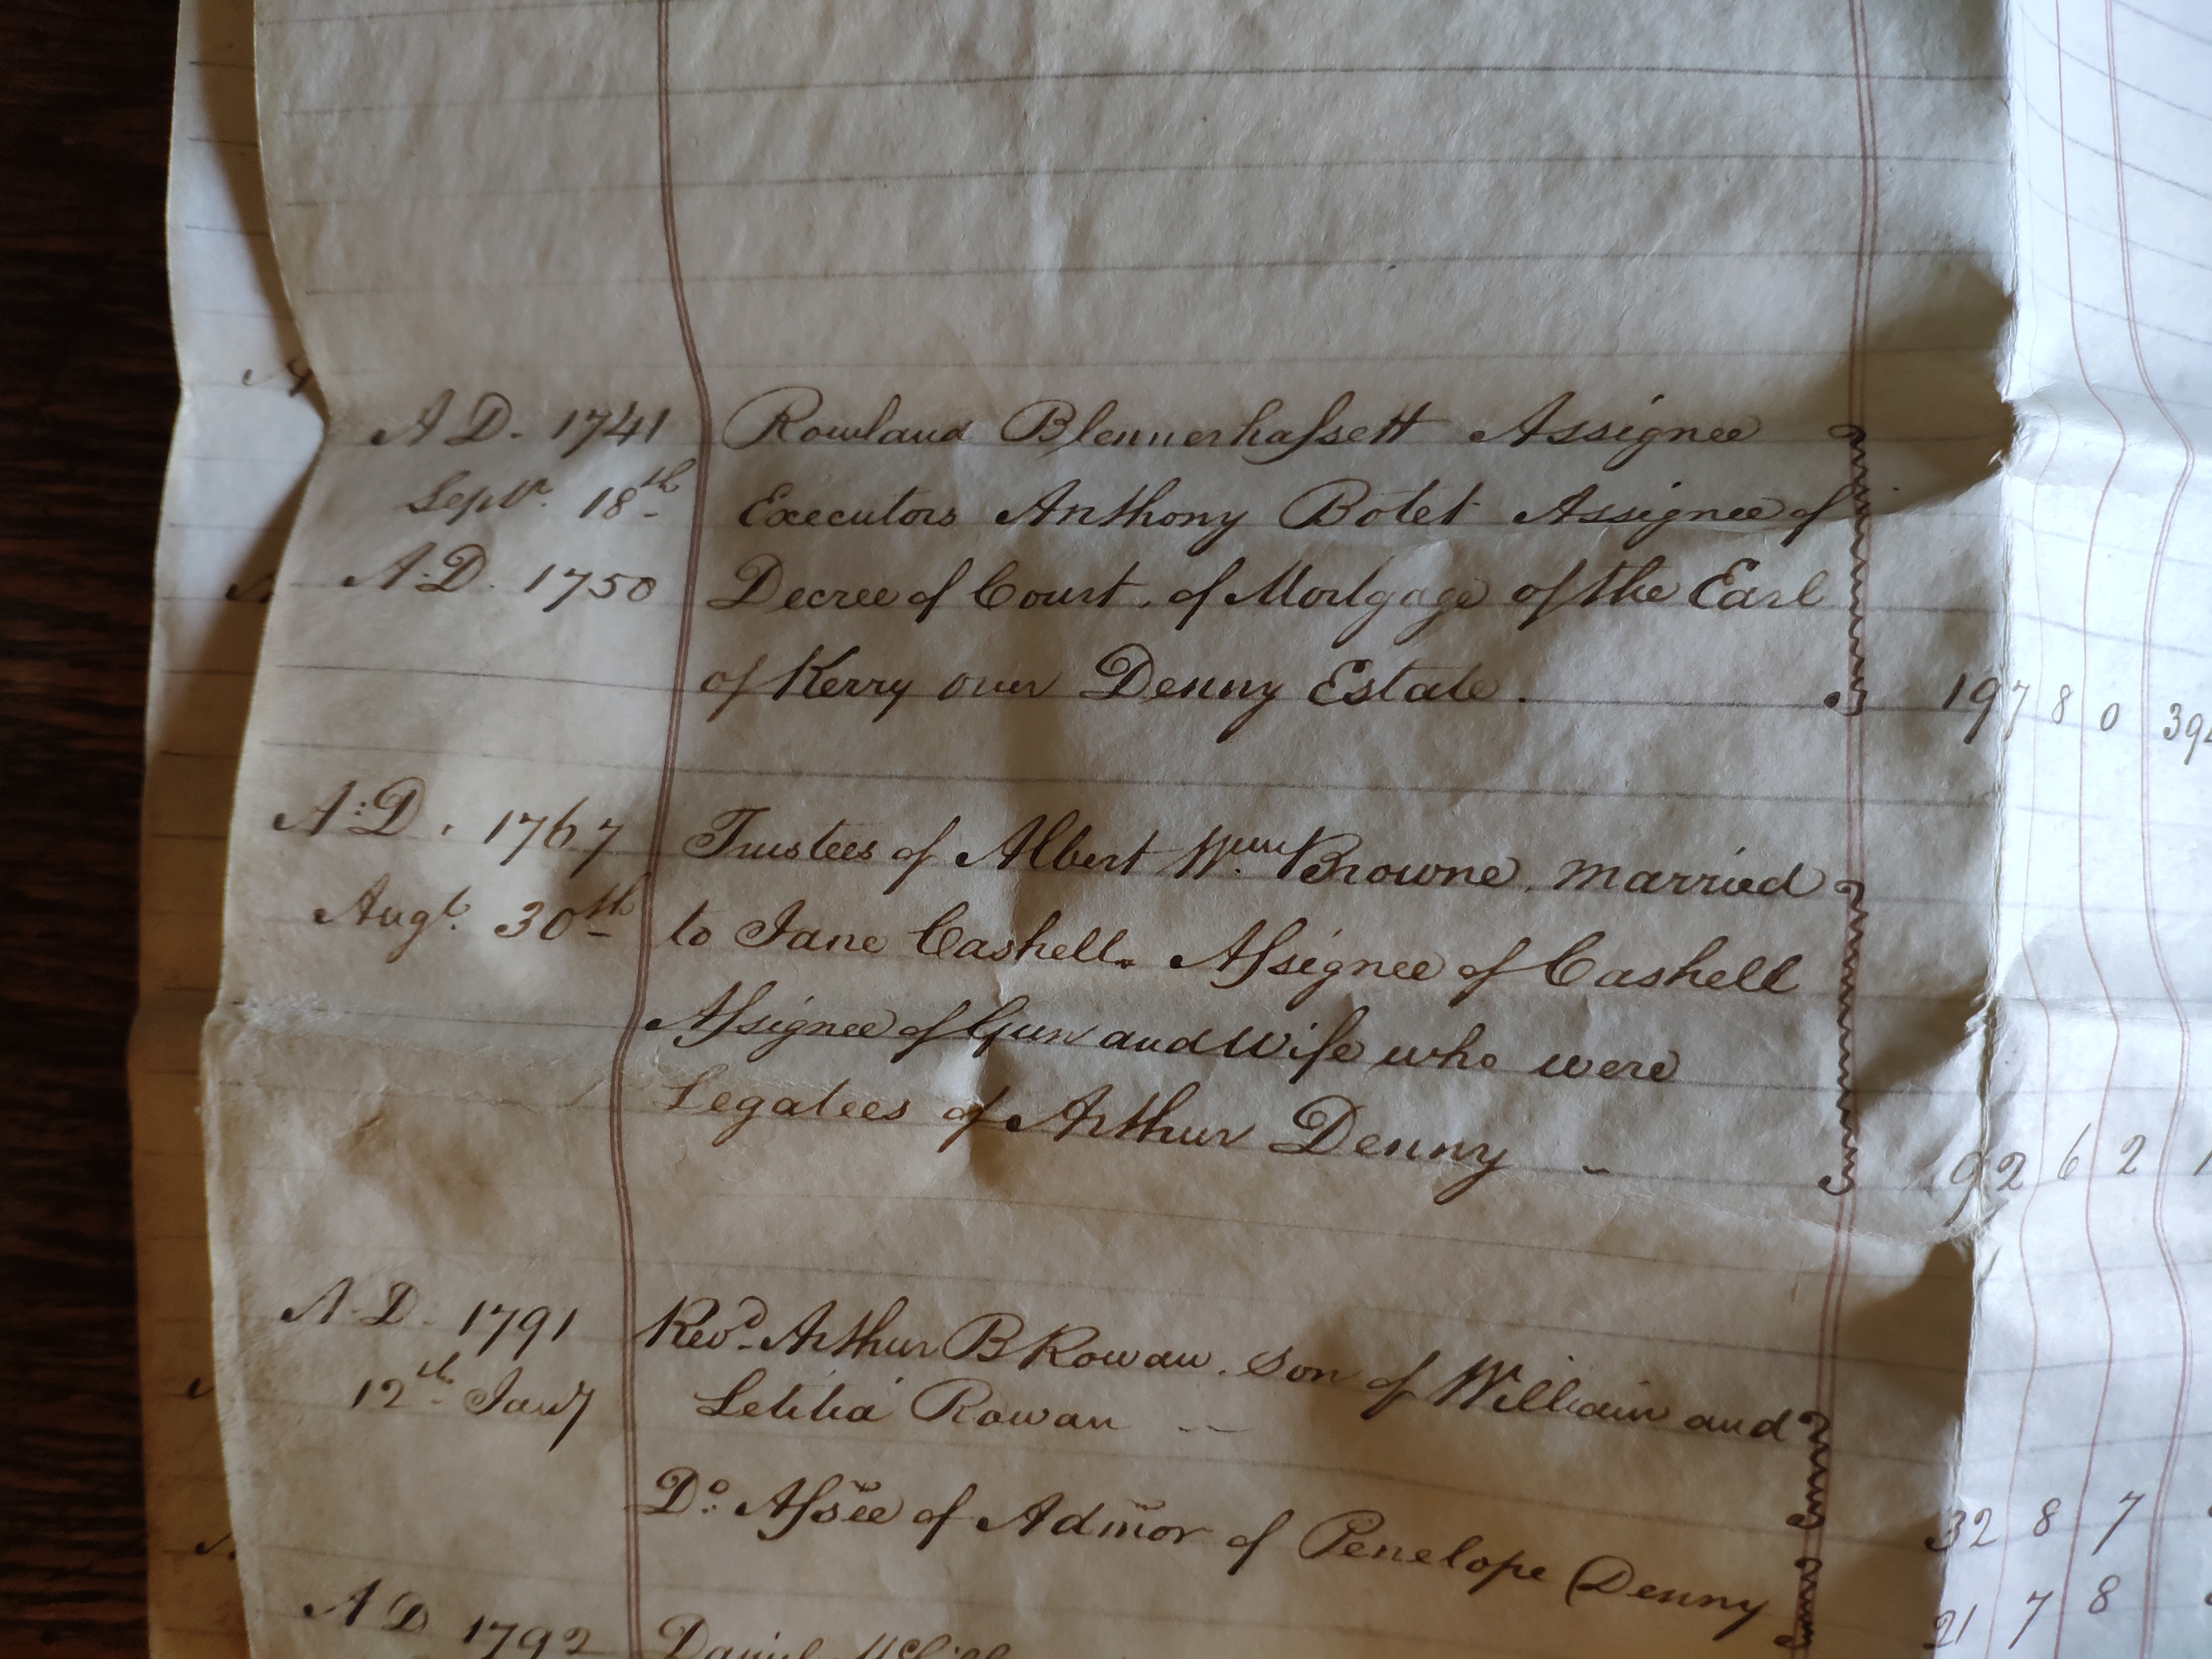 A.D. 1741 Rowland Blennerhassett Assignee
Septr. 18th Executors Anthony Botet Assignee of
A.D. 1750 Decree of Court. of Mortgage of the Earl
of Kerry over Denny Estate. 197 8 0
A.D. 1767 Trustees of Albert Wm. Browne, married
Augt. 30th to Jane Cashell. Assignee of Cashell
Assignee of Gun and Wife who were
Legatees of Arthur Denny - 92 6 2
A.D. 1791 Revd. Arthur B Rowan. Son of William and
12th Jany Letitia Rowan -- 32 8 7
Do. Assee of Admor of Penelope Denny 21 7 8
A D 1792 Daniel